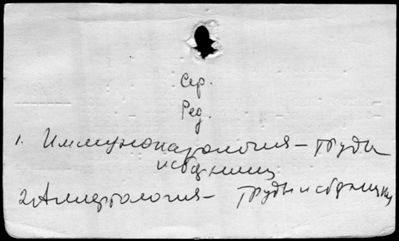 Сер.
Ред.
1. Иммунопатология – труды
и сборники
2. Аллергология – труды и сборники